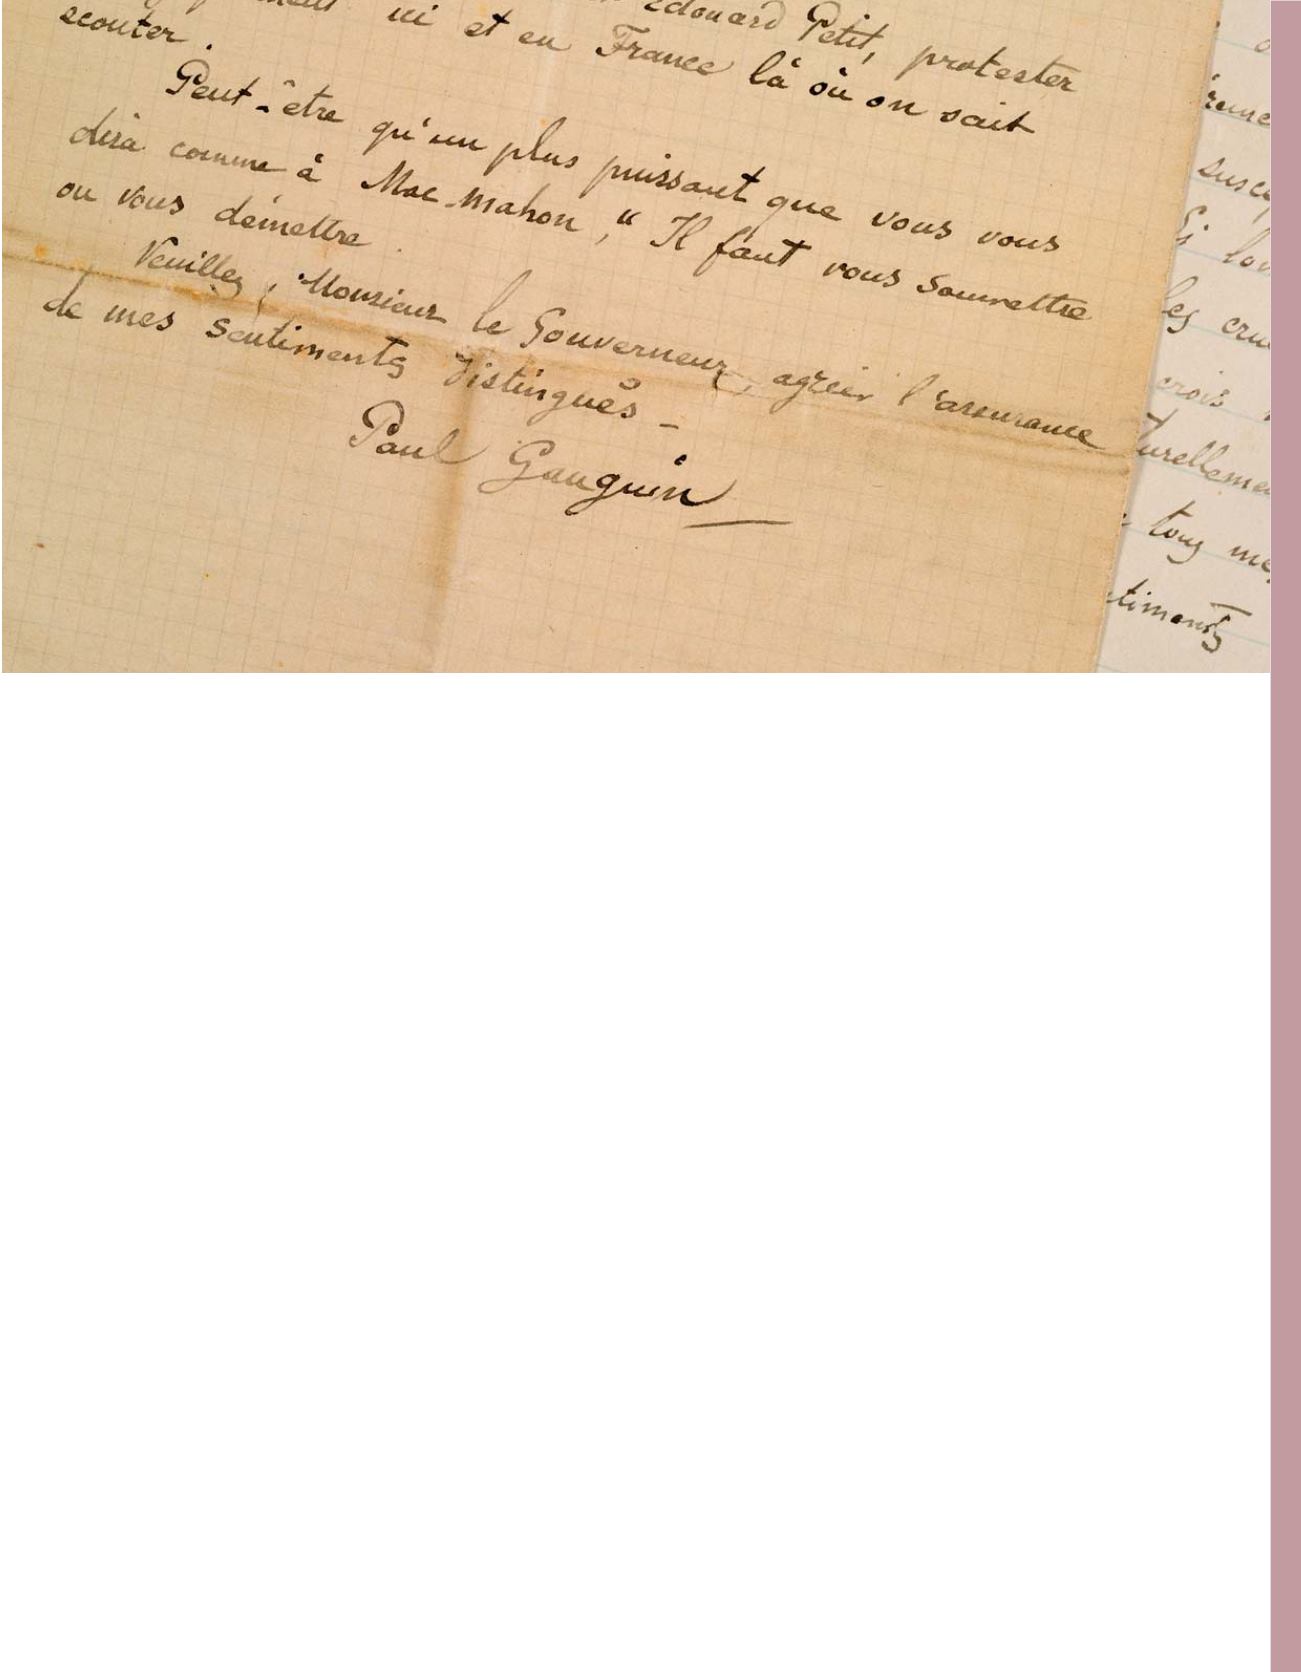 Edouard Petit, protester
ici et en France là où on sait
écouter.
Peut-être qu'un plus puissant que vous vous
dira comme à Mac-Mahon, “Il faut vous soumettre
ou vous démettre
Veuillez, Monsieur le Gouverneur, agréer l'assurance
de mes sentiments distingués _
Paul Gauguin
susce
Si lon
les cru
crois
turelleme
tous me
timents